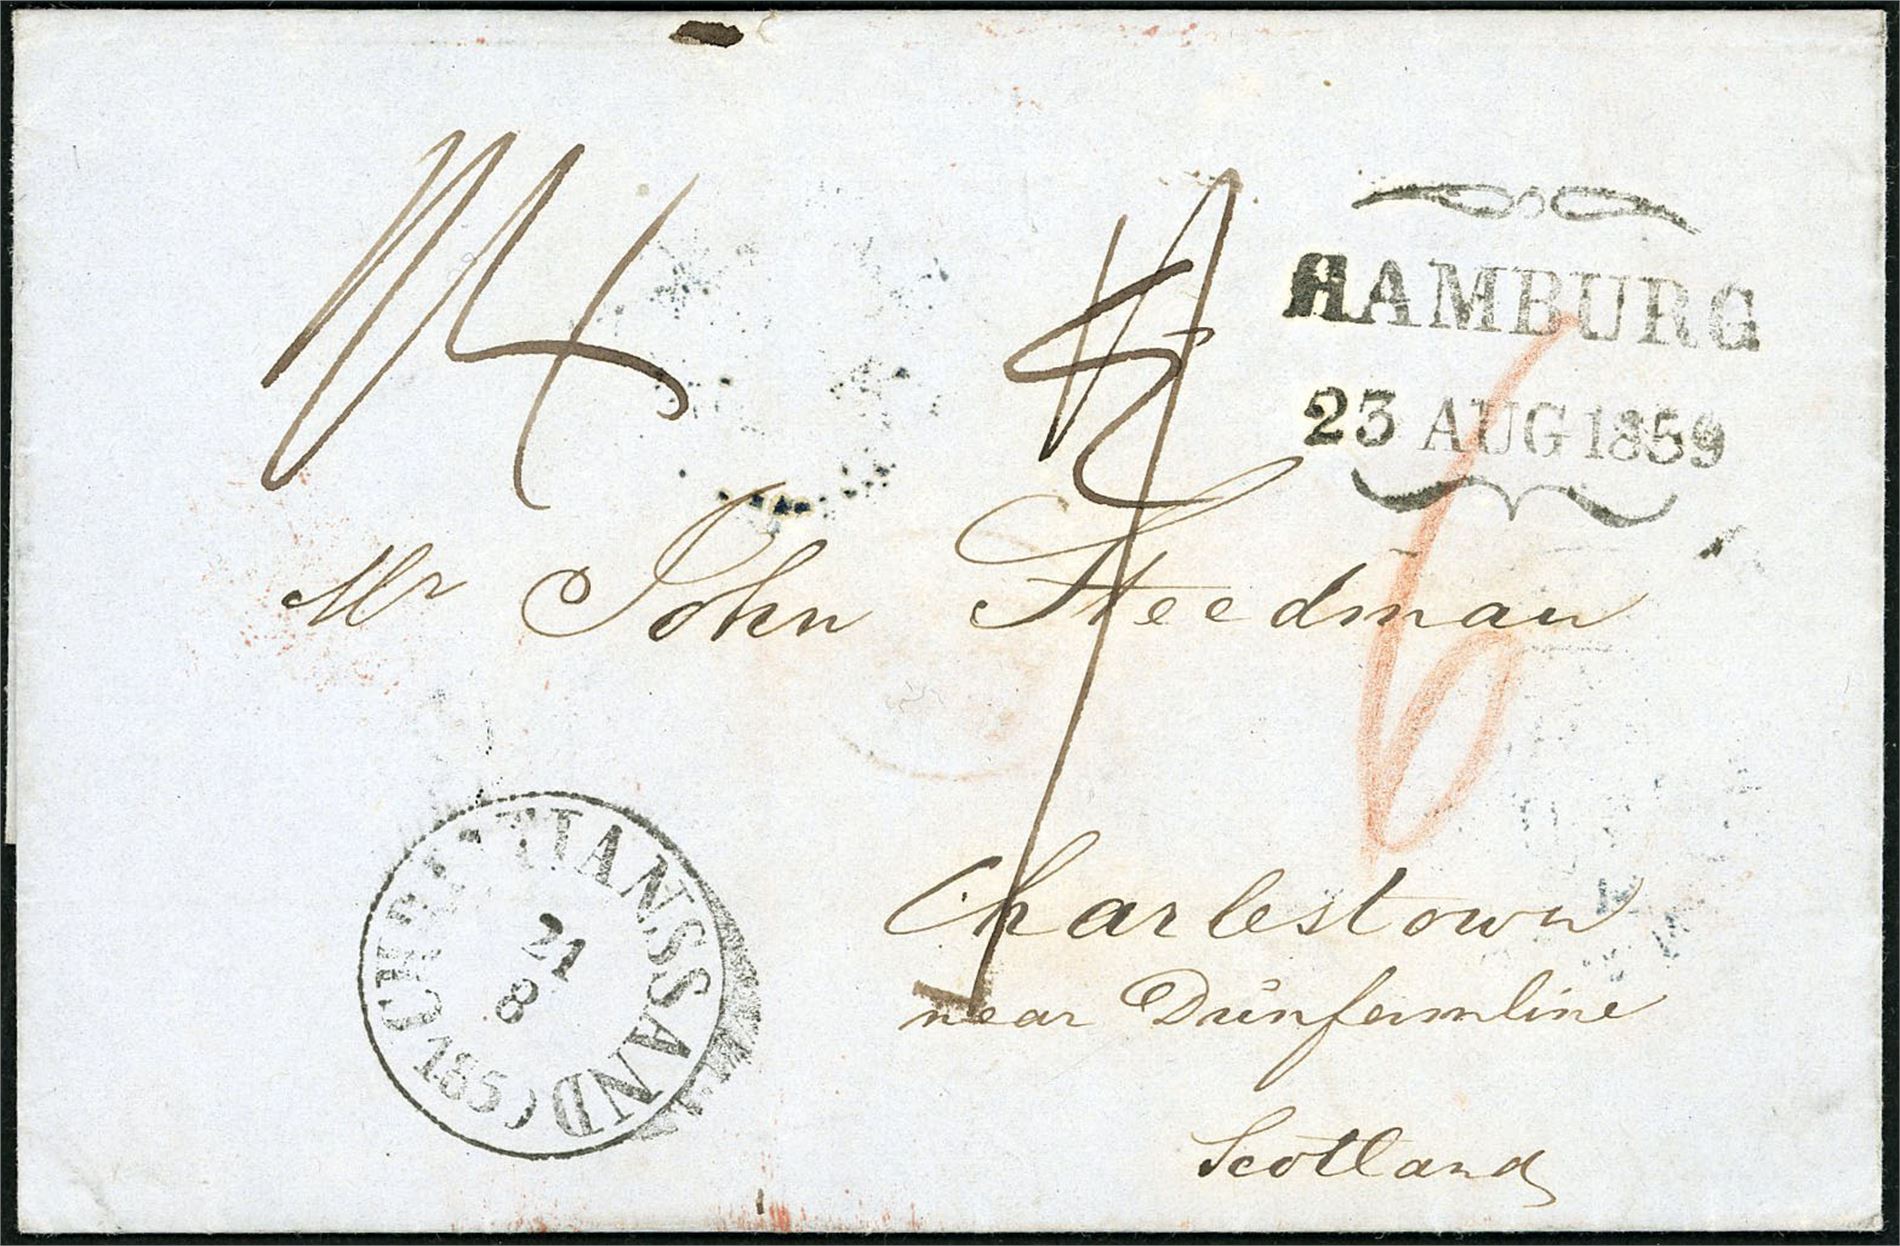 HAMBURG
23 AUG 1859
6
Mr John Steedman
CHRISTIANSSAND (1859)
21
8
Charlestown
near Dunfermline
Scotland